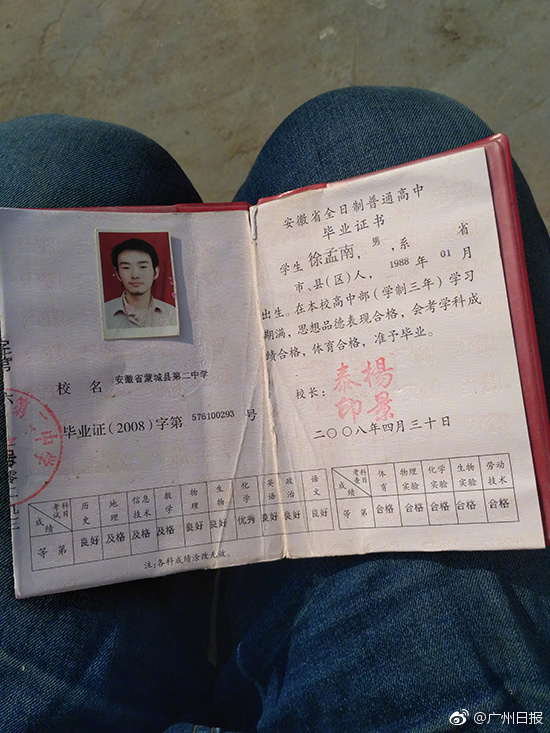 校 名 安徽省蒙城县第二中学
毕业证(2008)字第 576100293 号
考试科目 历史 地理 信息技术 数学 物理 生物 化学 英语 政治 语文
成绩
等第 良好 及格 及格 及格 良好 良好 优秀 良好 良好 良好
注:各科成绩涂改无效。
安徽省全日制普通高中
毕业证书
学生 徐孟南, 男, 系 省
市、县(区)人, 1988 年 01 月
出生。在本校高中部(学制三年)学习
期满,思想品德表现合格,会考学科成
绩合格,体育合格,准予毕业。
校长: 楊景泰印
二〇〇八年四月三十日
考查科目 体育 物理实验 化学实验 生物实验 劳动技术
成绩
等第 合格 合格 合格 合格 合格
@广州日报